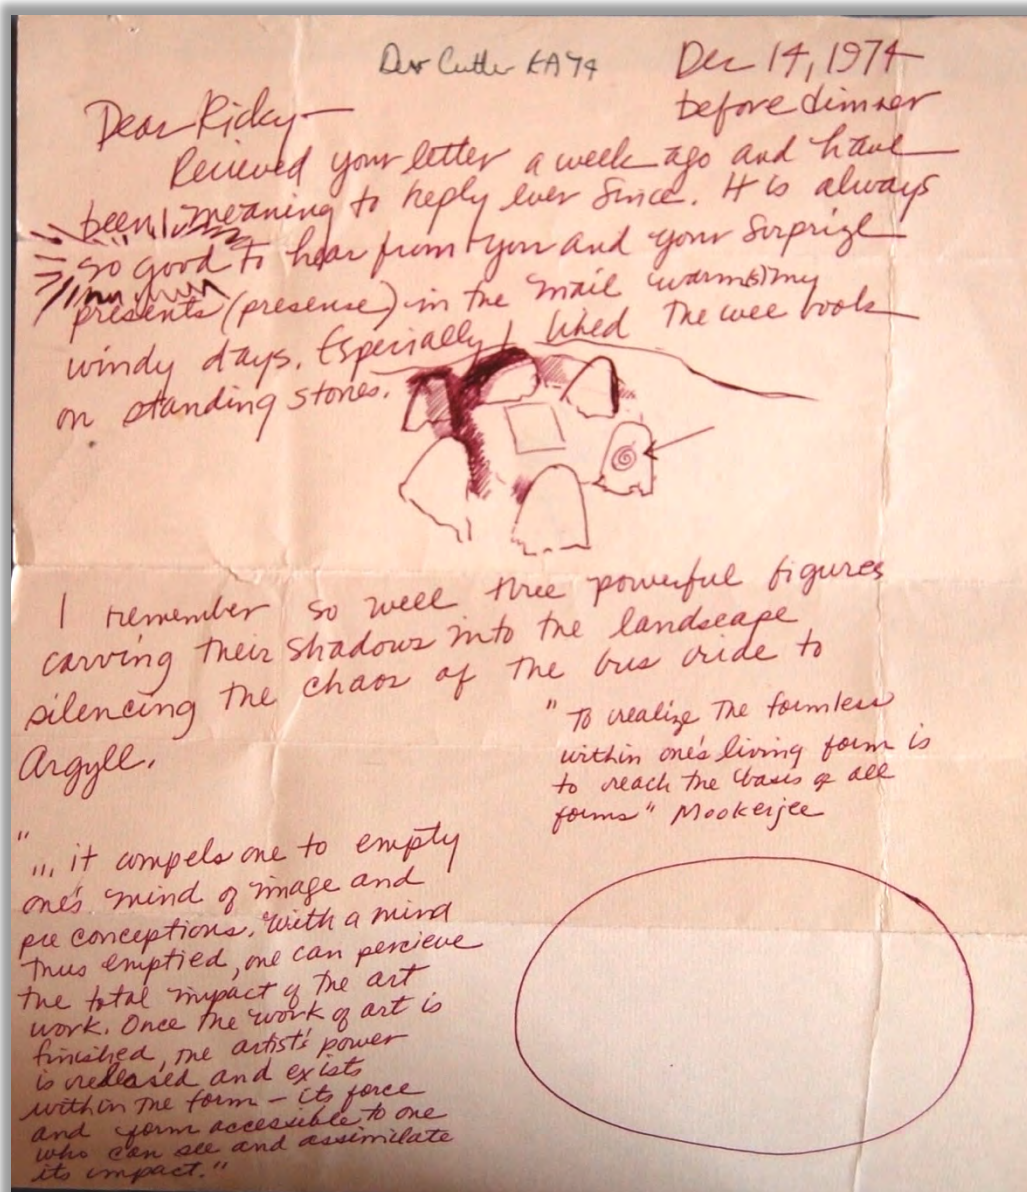 Dev Cutler KA 74
Dec 14, 1974
before dinner
Dear Ricky—
Recieved your letter a week ago and have
been meaning to reply ever since. It is always
so good to hear from you and your surprize
presents (presense) in the mail warms my
windy days. Especially liked the wee book
on standing stones.
I remember so well three powerful figures
carving their shadows into the landscape
silencing the chaos of the bus ride to
Argyll.
"To realize the formless
within one's living form is
to reach the basis of all
forms" Mookerjee
"... it compels one to empty
one's mind of image and
pre conceptions. With a mind
thus emptied, one can percieve
the total impact of the art
work. Once the work of art is
finished, the artist's power
is released and exists
within the form – its force
and form accessible to one
who can see and assimilate
its impact."